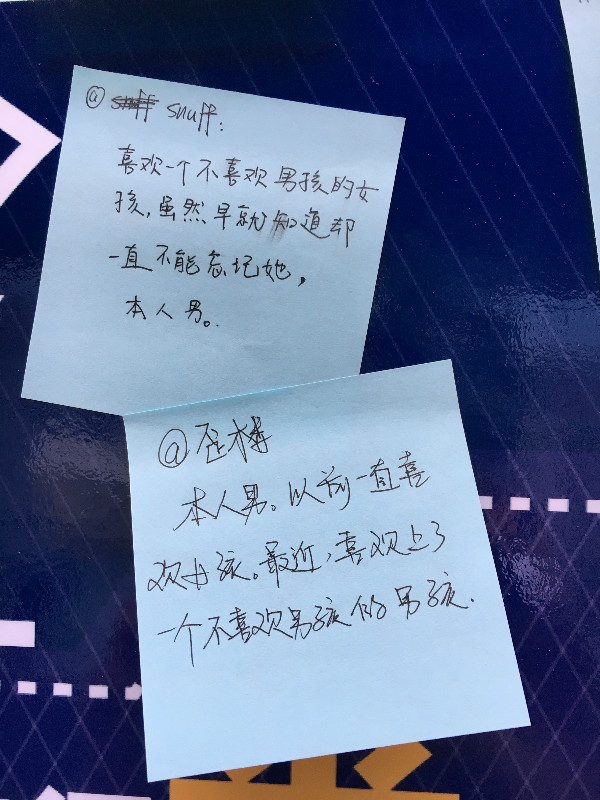 @ snuff:
喜欢一个不喜欢男孩的女
孩,虽然早就知道却
一直不能忘记她,
本人男。
@歪楼
本人男。以前一直喜
欢女孩。最近,喜欢上了
一个不喜欢男孩的男孩.